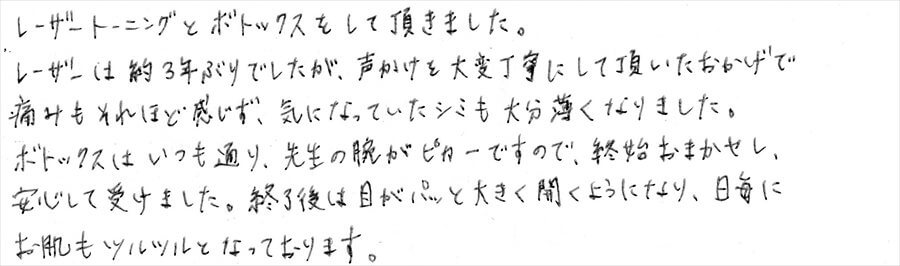 レーザートーニングとボトックスをして頂きました。
レーザーは約3年ぶりでしたが、声かけを大変丁寧にして頂いたおかげで
痛みもそれほど感じず、気になっていたシミも大分薄くなりました。
ボトックスはいつも通り、先生の腕がピカ一ですので、終始おまかせし、
安心して受けました。終了後は目がパッと大きく開くようになり、日毎に
お肌もツルツルとなっております。